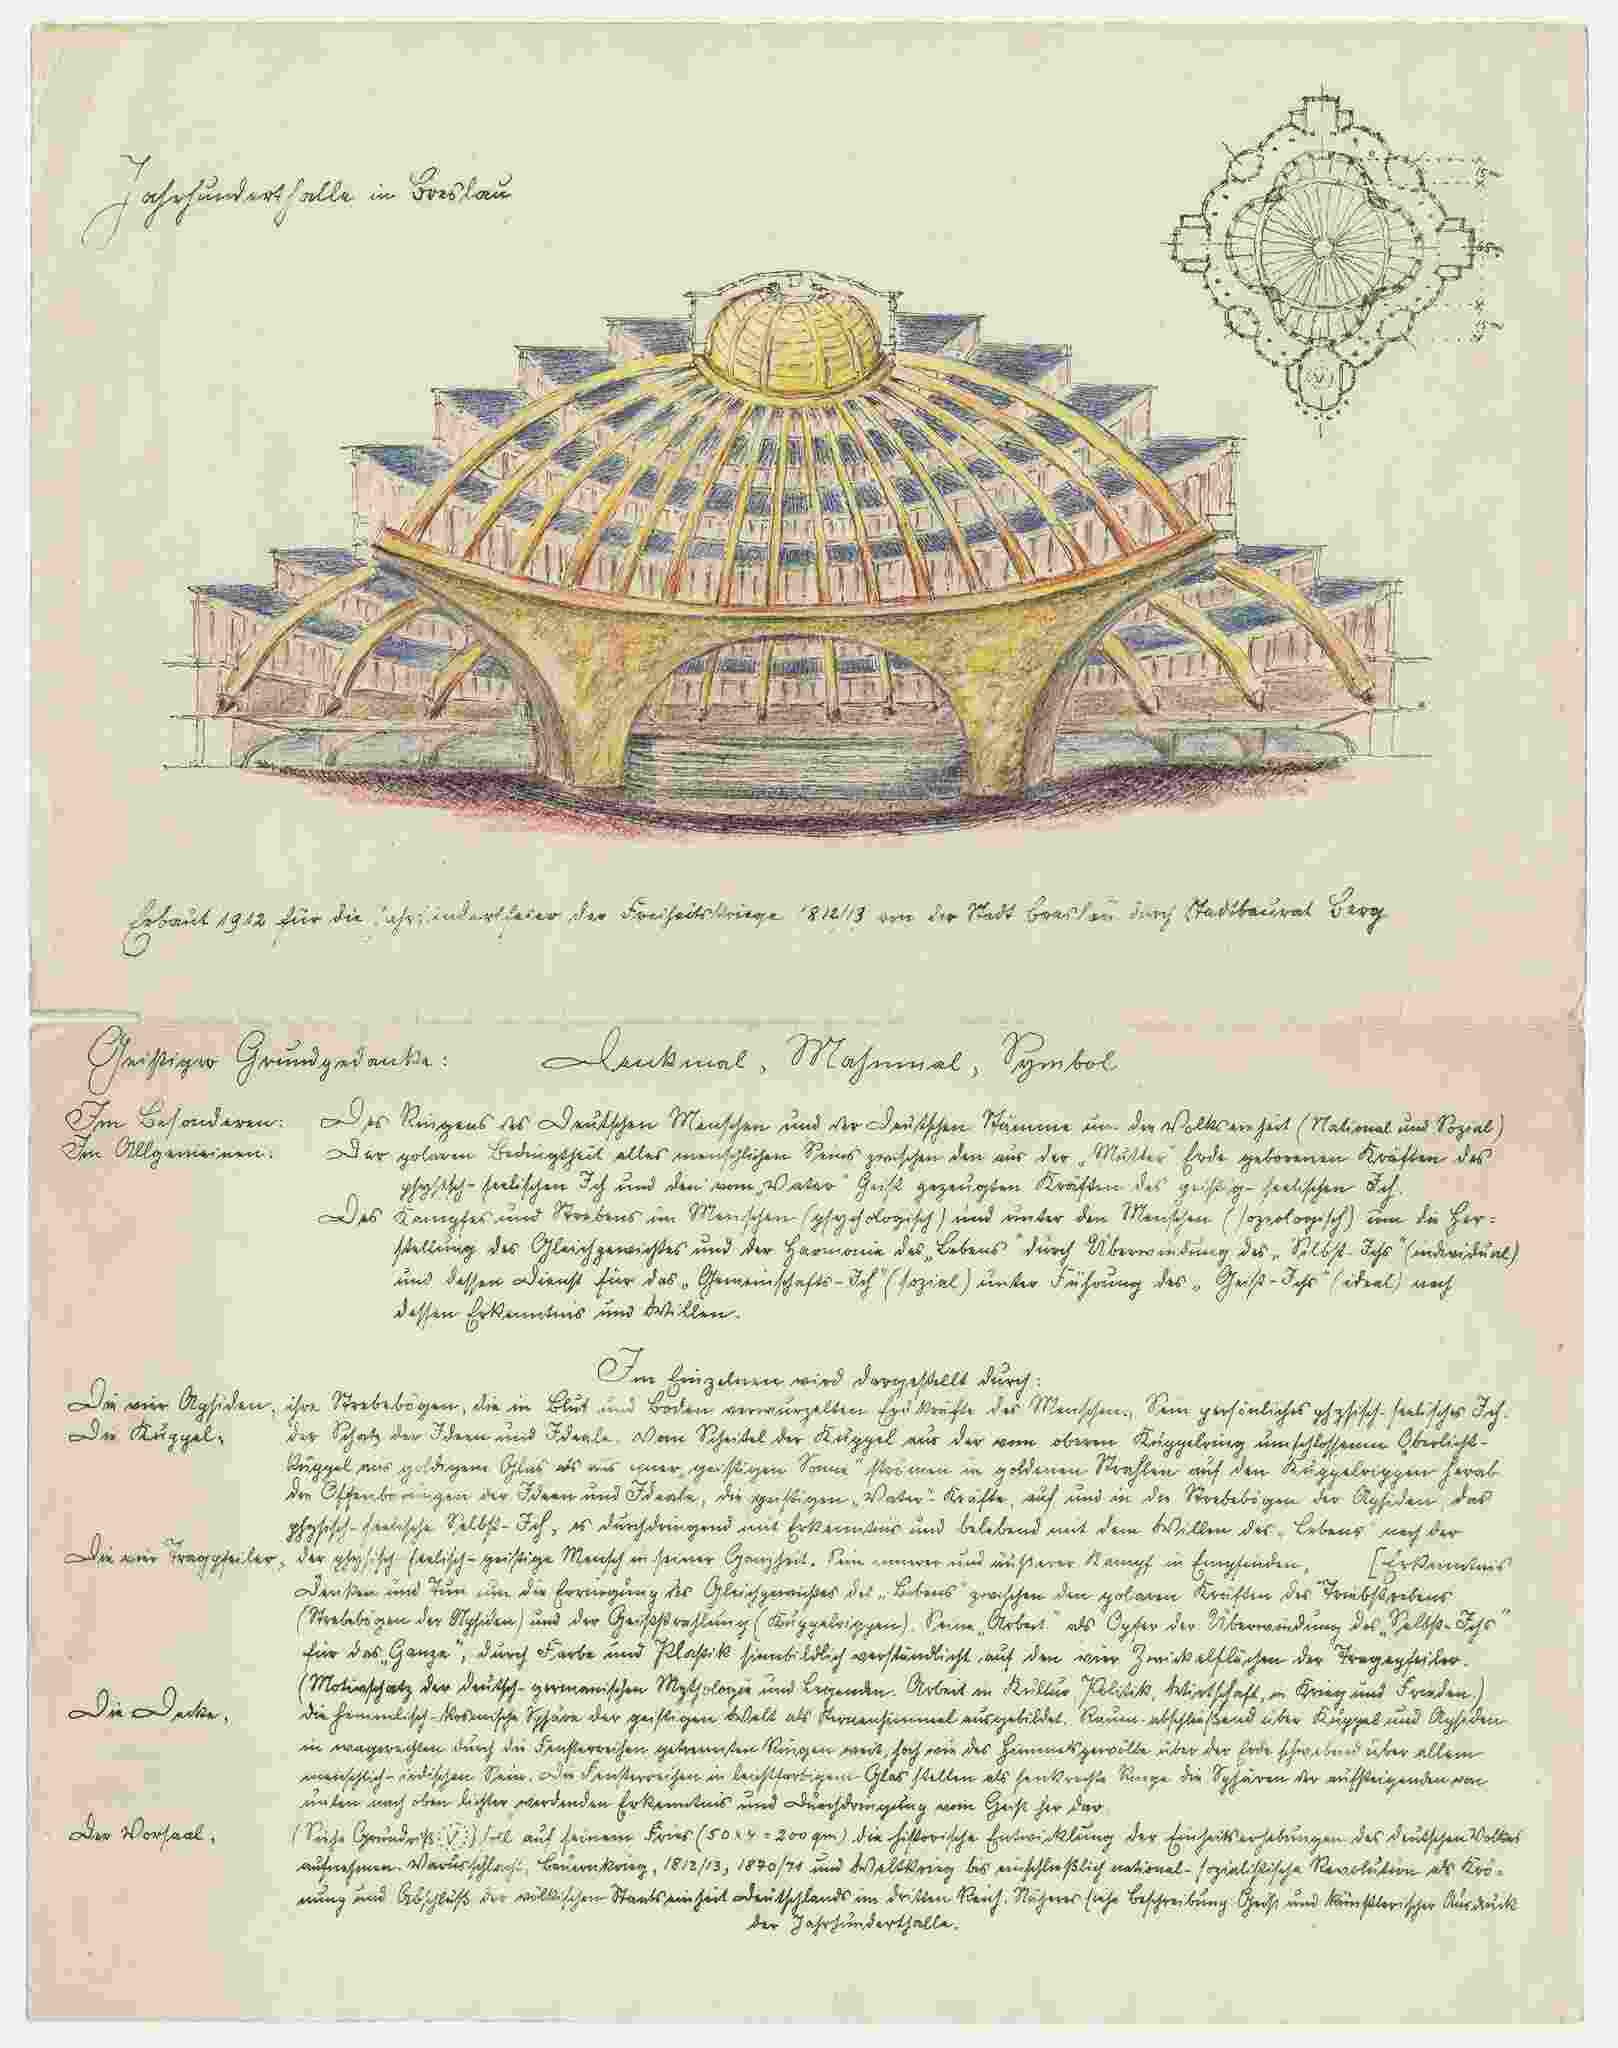 Jahrhunderthalle in Breslau
15 m
65 m
15 m
V
Erbaut 1912 für die Jahrhundertfeier der Freiheitskriege 1812/13 von der Stadt Breslau durch Stadtbaurat Berg
Geistiger Grundgedanke: Denkmal, Mahnmal, Symbol
Im Besonderen: Des Ringens des Deutschen Menschen und der Deutschen Stämme um die Volkseinheit (National und Sozial)
Im Allgemeinen: Der polaren Bedingtheit alles menschlichen Seins zwischen den aus der „Mutter" Erde geborenen Kräften des
physisch-seelischen Ich und den vom „Vater" Geist gezeugten Kräften des geistig-seelischen Ich.
Des Kampfes und Strebens im Menschen (psychologisch) und unter den Menschen (soziologisch) um die Her=
stellung des Gleichgewichtes und der Harmonie des „Lebens" durch Überwindung des „Selbst-Ichs" (individual)
und dessen Dienst für das „Gemeinschafts-Ich" (sozial) unter Führung des „Geist-Ichs" (ideal) nach
dessen Erkenntnis und Willen.
Im Einzelnen wird dargestellt durch:
Die vier Apsiden, ihre Strebebögen, die in Blut und Boden verwurzelten Erdkräfte des Menschen. Sein persönliches physisch-seelisches Ich.
Die Kuppel, der Schatz der Ideen und Ideale. Vom Scheitel der Kuppel aus der vom oberen Kuppelring umschlossenen Oberlicht-
kuppel aus goldigem Glas als aus einer „geistigen Sonne" strömen in goldenen Strahlen auf den Kuppelrippen herab
die Offenbarungen der Ideen und Ideale, die geistigen „Vater"-Kräfte, auf und in die Strebebögen der Apsiden, das
physisch-seelische Selbst-Ich, es durchdringend mit Erkenntnis und belebend mit dem Willen des „Lebens" nach der
[Erkenntnis
Die vier Tragpfeiler, der physisch-seelisch-geistige Mensch in seiner Ganzheit. Sein innerer und äußerer Kampf in Empfinden,
Denken und Tun um die Erringung des Gleichgewichtes des „Lebens" zwischen den polaren Kräften des Triebstrebens
(Strebebögen der Apsiden) und der Geiststrahlung (Kuppelrippen). Seine „Arbeit" als Opfer der Überwindung des „Selbst-Ichs"
für das „Ganze", durch Farbe und Plastik sinnbildlich verständlicht auf den vier Zwickelflächen der Tragepfeiler.
(Motivschatz der deutsch-germanischen Mythologie und Legenden. Arbeit in Kultur, Politik, Wirtschaft, in Krieg und Frieden)
Die Decke, die himmlisch-kosmische Sphäre der geistigen Welt als Sternenhimmel ausgebildet. Raum-abschließend über Kuppel und Apsiden
in wagerechten durch die Fensterreihen getrennten Ringen weit, hoch wie des Himmelsgewölbe über der Erde schwebend über allem
menschlich-irdischen Sein. Die Fensterreihen in leichtfarbigem Glas stellen als senkrechte Ringe die Sphären der aufsteigenden von
unten nach oben lichter werdenden Erkenntnis und Durchdringung vom Geist her dar.
Der Vorsaal, (Siehe Grundriß V) soll auf seinem Fries (50 x 4 = 200 qm) die historische Entwicklung der Einheitserhebungen des deutschen Volkes
aufnehmen. Varusschlacht, Bauernkrieg, 1812/13, 1870/71 und Weltkrieg bis einschließlich national-sozialistische Revolution als Krö=
nung und Abschluß der völkischen Staatseinheit Deutschlands im dritten Reich. Näheres siehe Beschreibung Geist und künstlerischer Ausdruck
der Jahrhunderthalle.